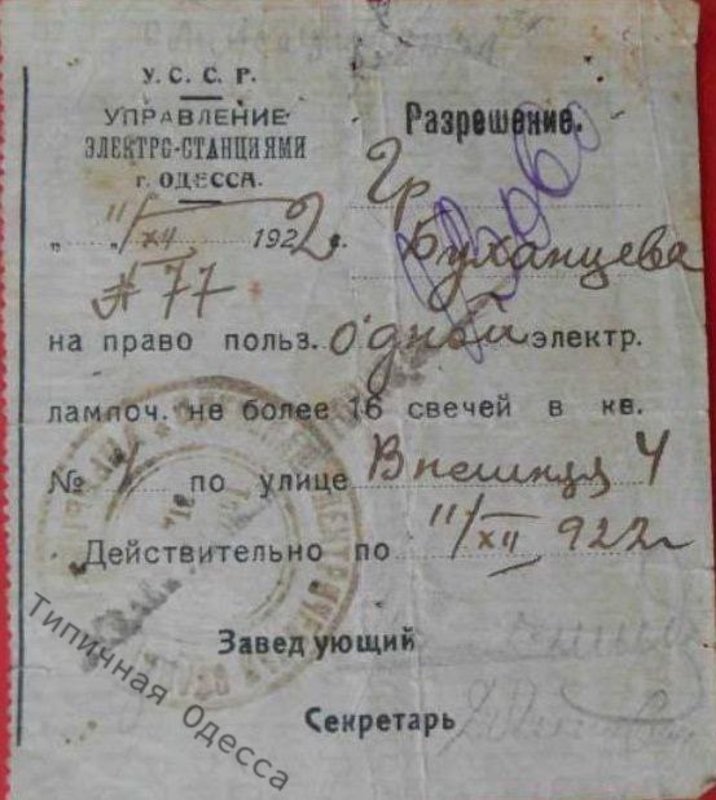 У. С. С. Р.
УПРАВЛЕНИЕ
ЭЛЕКТРО-СТАНЦИЯМИ
г. ОДЕССА.
"11/XII 1922 г.
№ 77
Разрешение.
Гр
Буханцева
на право польз. одной электр.
лампоч. не более 16 свечей в кв.
№ 1 по улице Внешняя 4
Действительно по 11/XII 922 г
Заведующий
Секретарь
Типичная Одесса